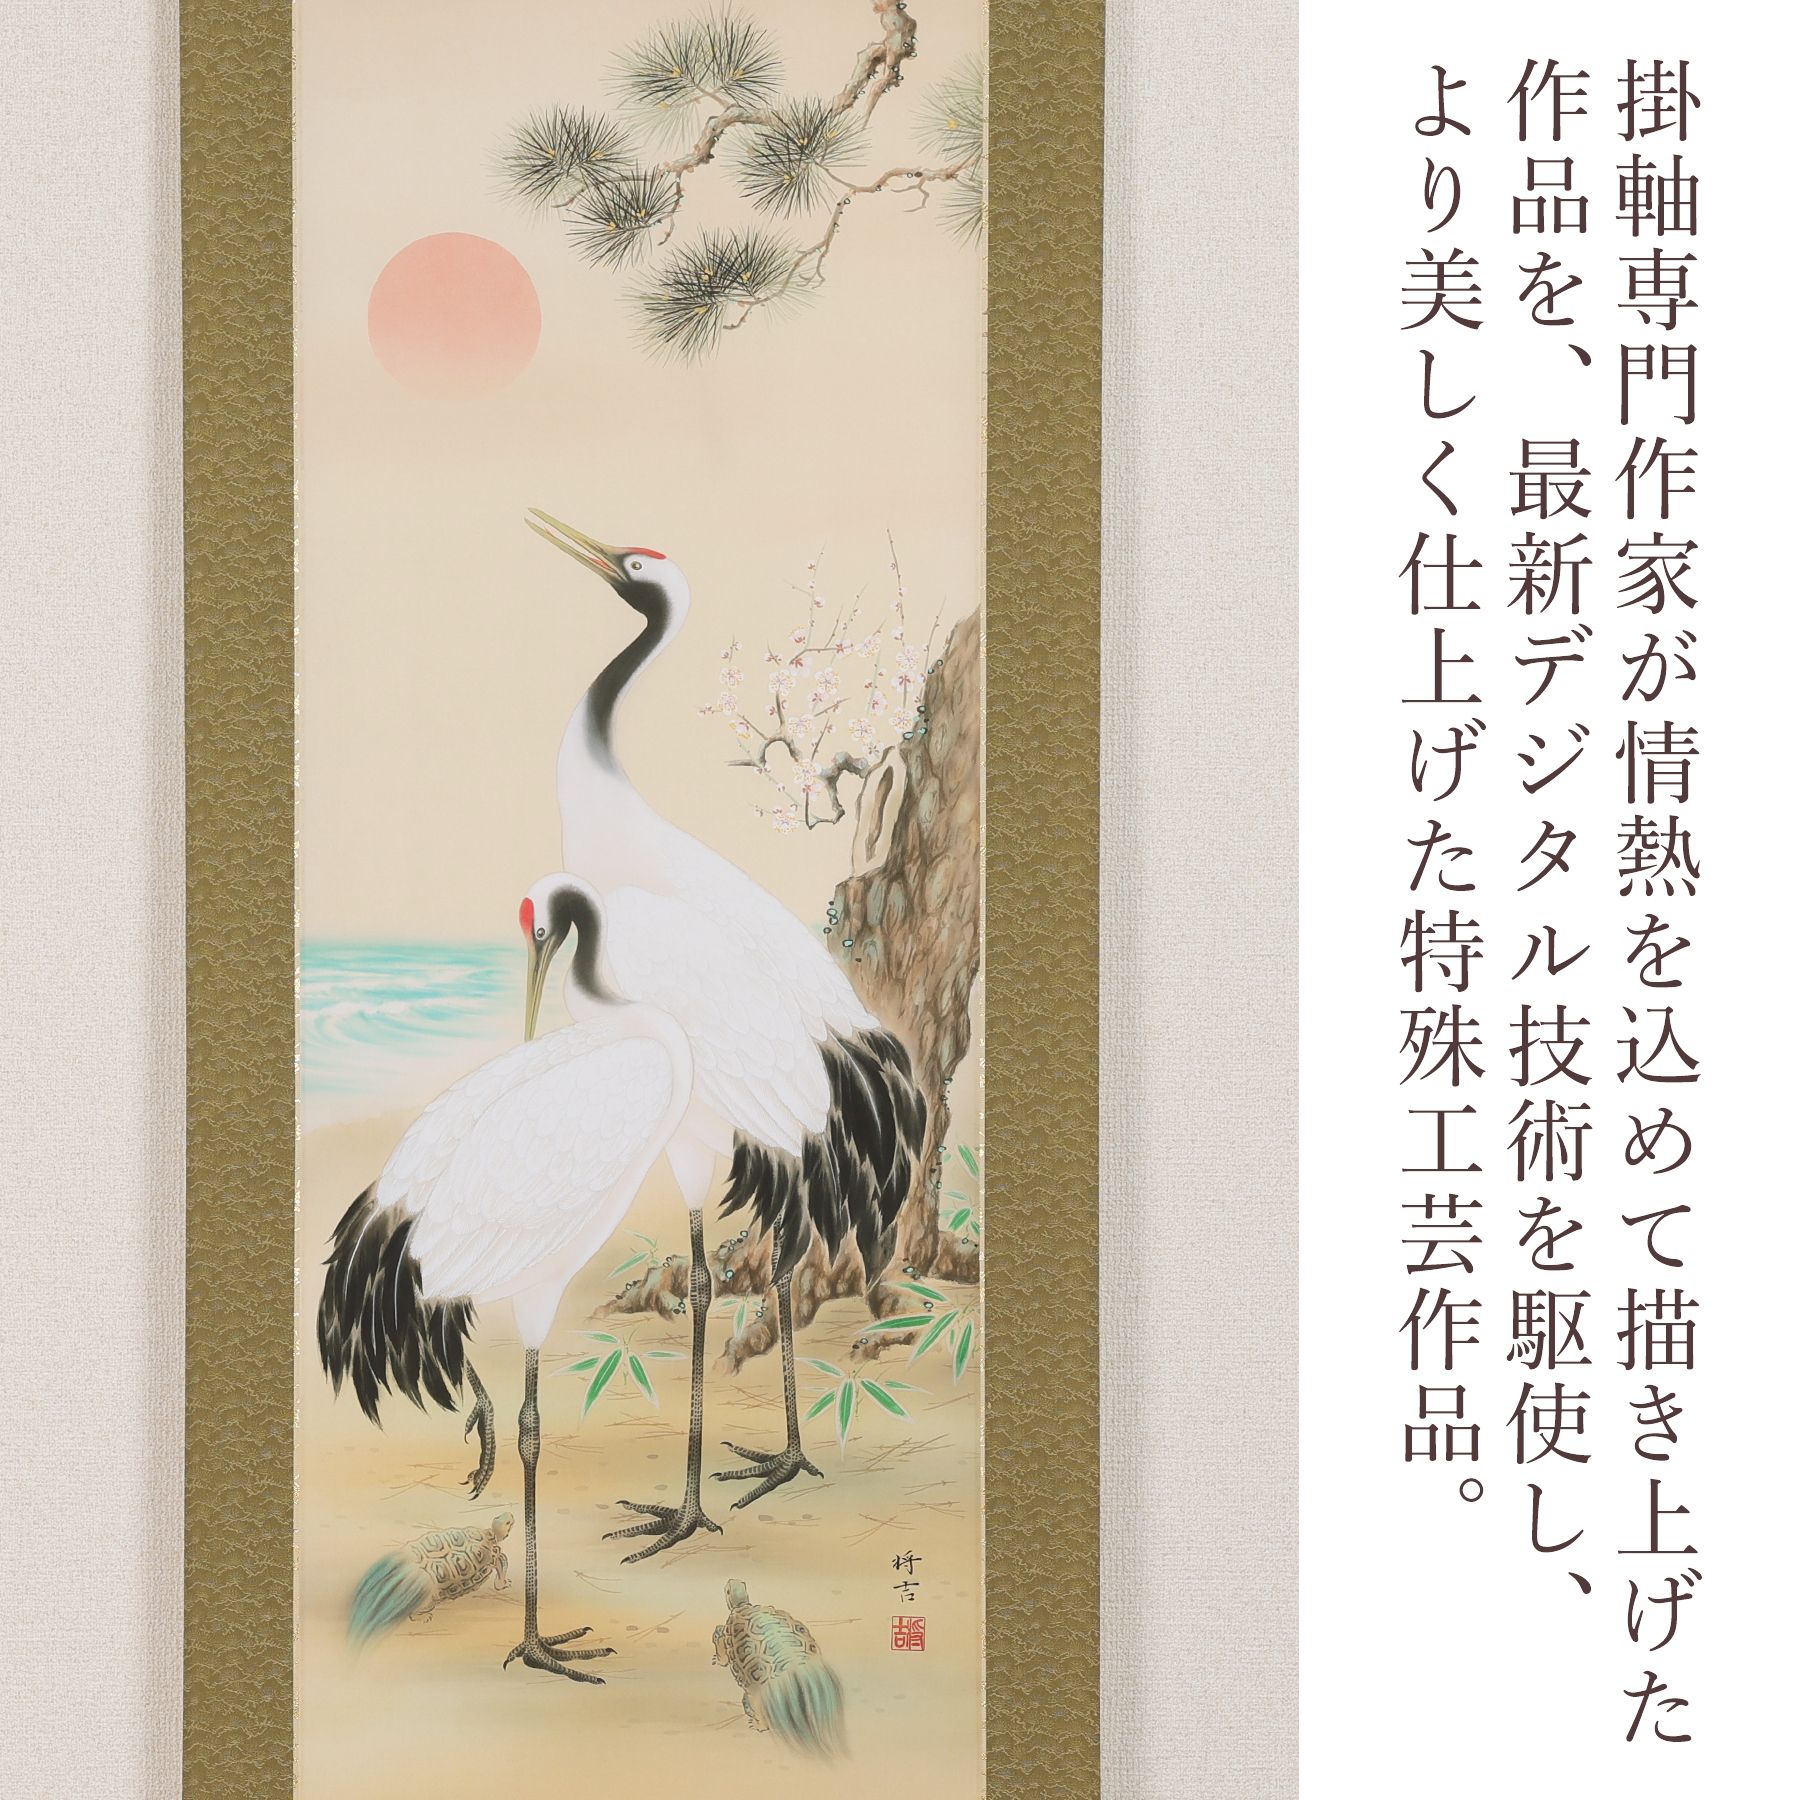 掛軸専門作家が情熱を込めて描き上げた
作品を、最新デジタル技術を駆使し、
より美しく仕上げた特殊工芸作品。
将吉
将吉